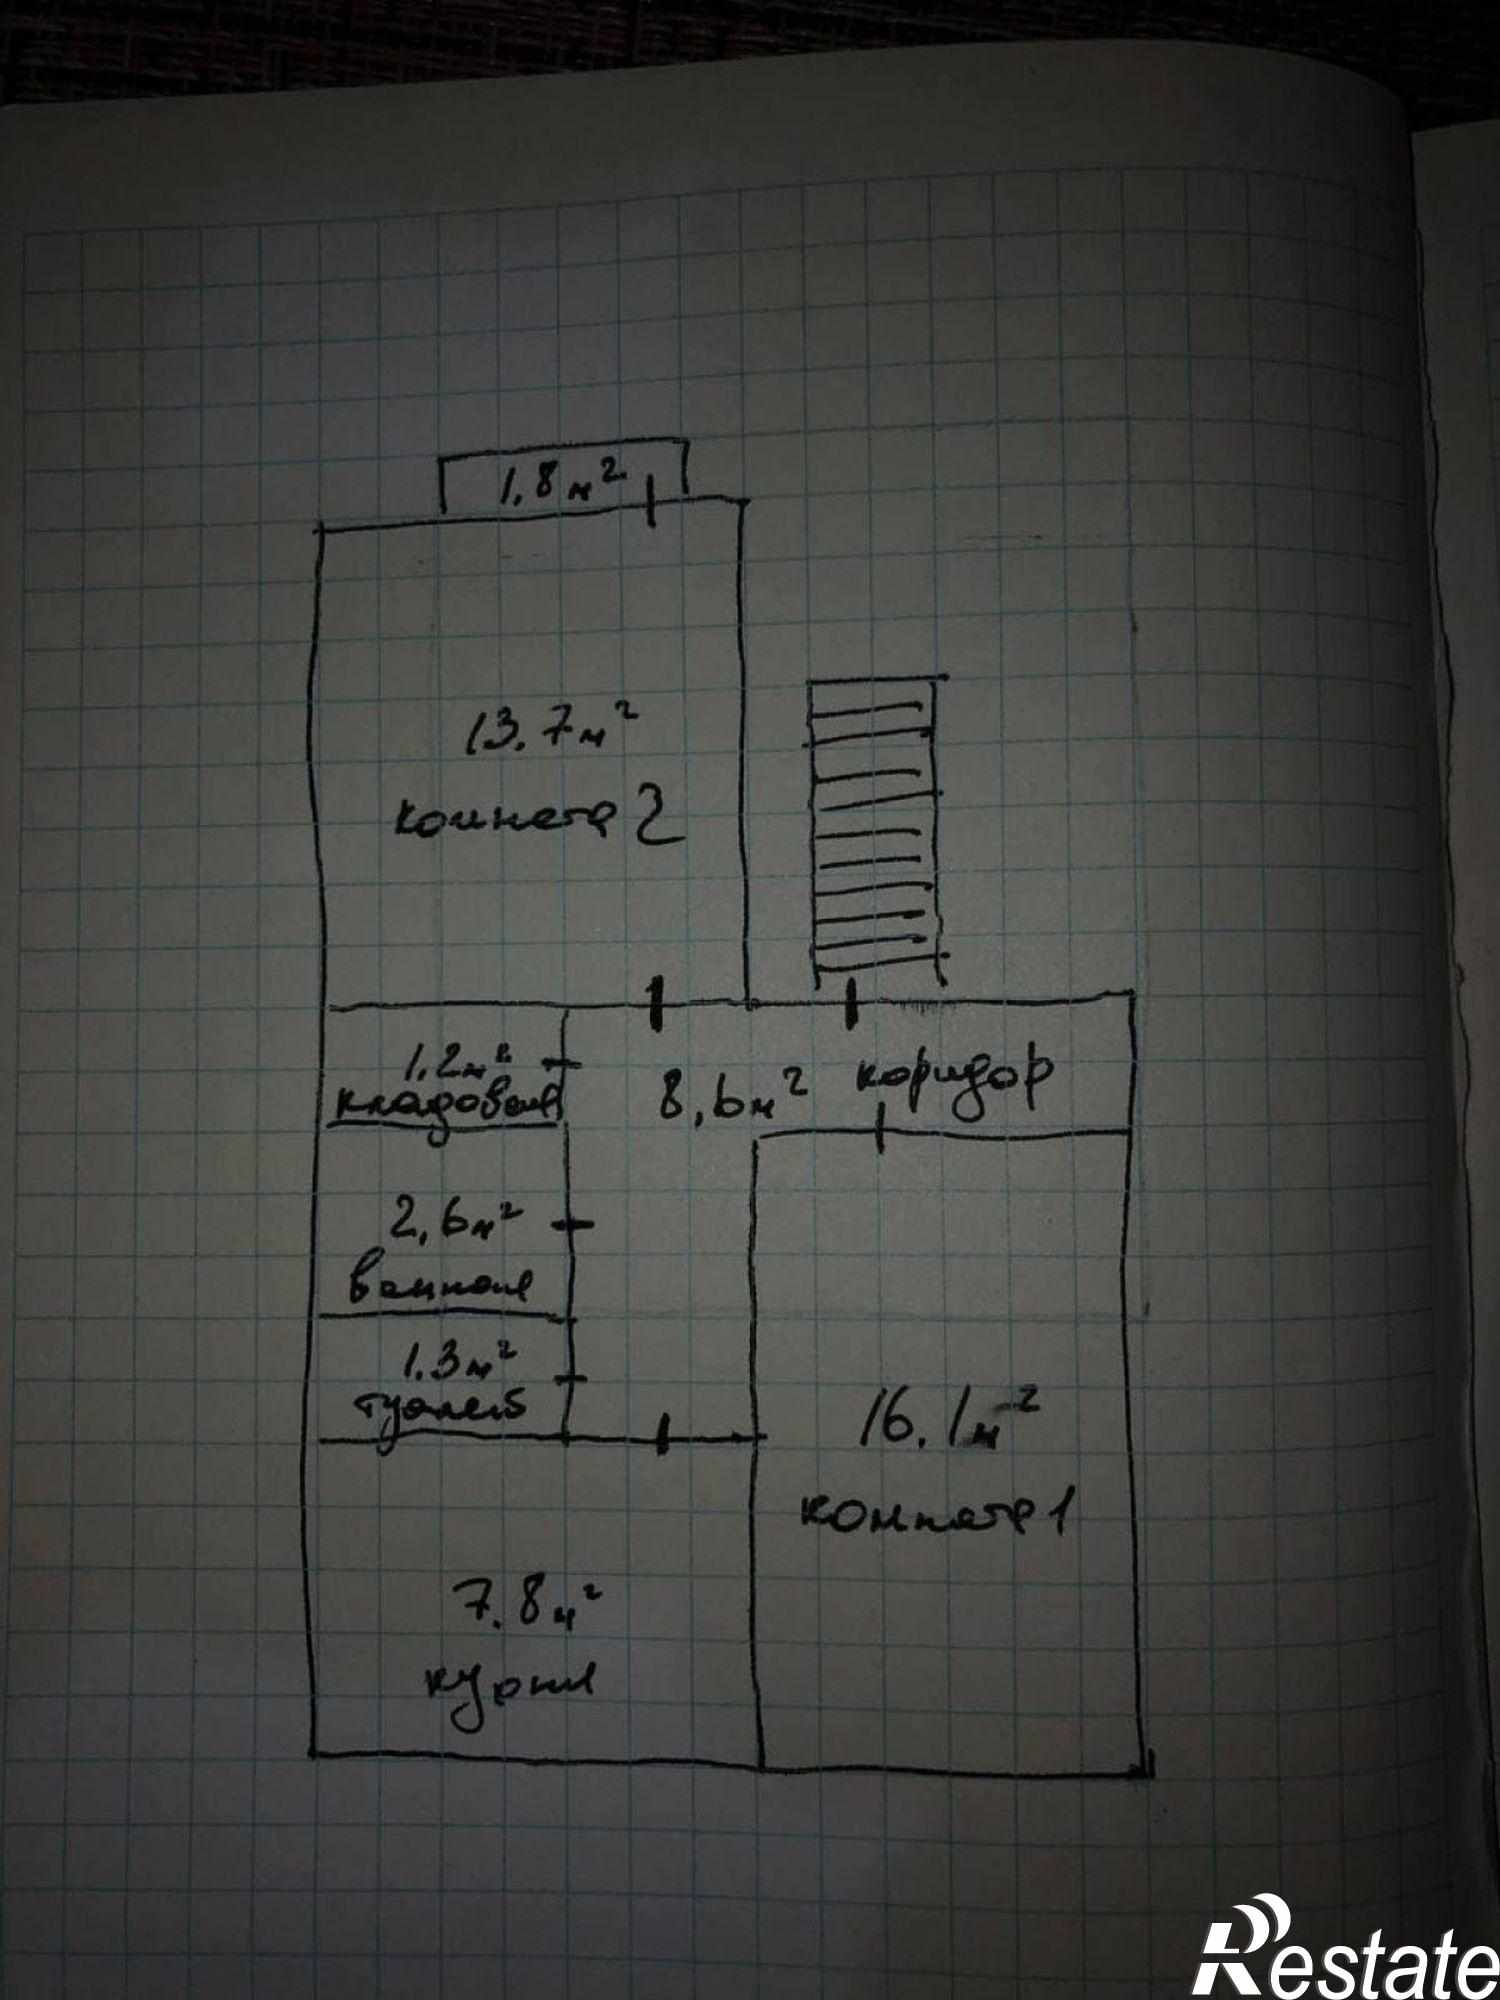 1,8м²
13.7м²
комната 2
1.2м²
кладовая
8,6м² коридор
2,6м²
ванная
1.3м²
туалет
16.1м²
комната 1
7.8м²
кухня
Restate